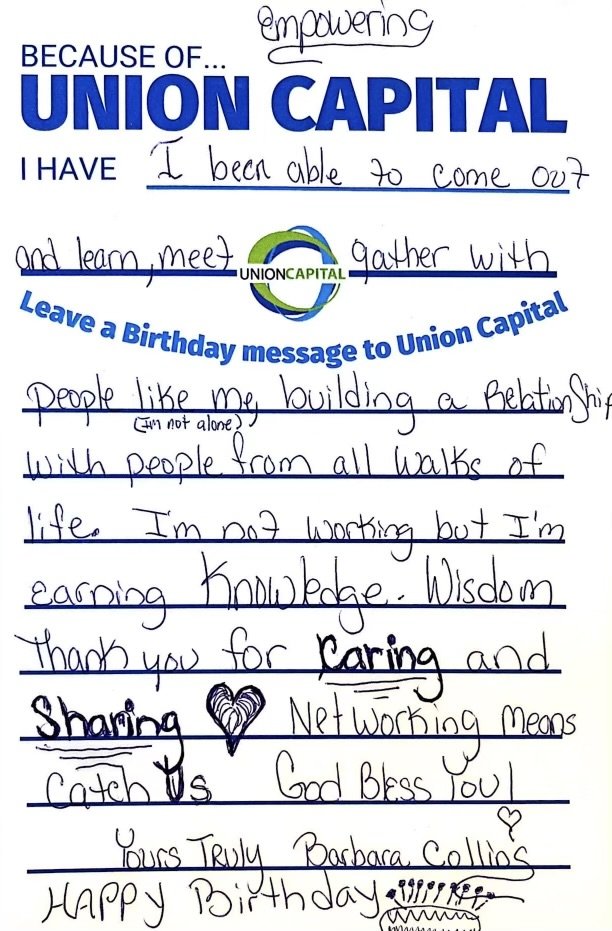 Empowering
BECAUSE OF...
UNION CAPITAL
I HAVE I been able to come out
and learn, meet UNIONCAPITAL gather with
Leave a Birthday message to Union Capital
People like me, building a Relationship
(I'm not alone)
with people from all walks of
life. I'm not working but I'm
earning Knowledge. Wisdom
Thank you for Caring and
Sharing Networking Means
Catch Us God Bless You!
Yours Truly Barbara Collins
HAPPY Birthday